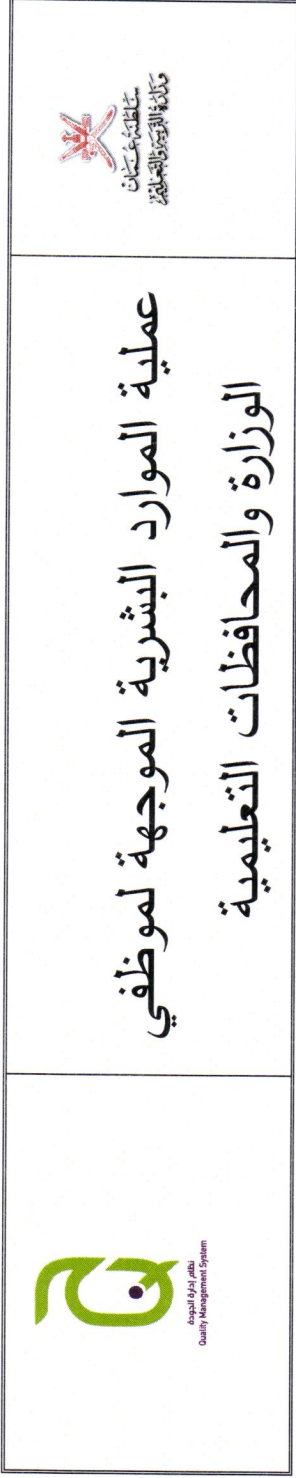 سلطنة عمان
وزارة التربية والتعليم
عملية الموارد البشرية الموجهة لموظفي
الوزارة والمحافظات التعليمية
نظام إدارة الجودة
Quality Management System